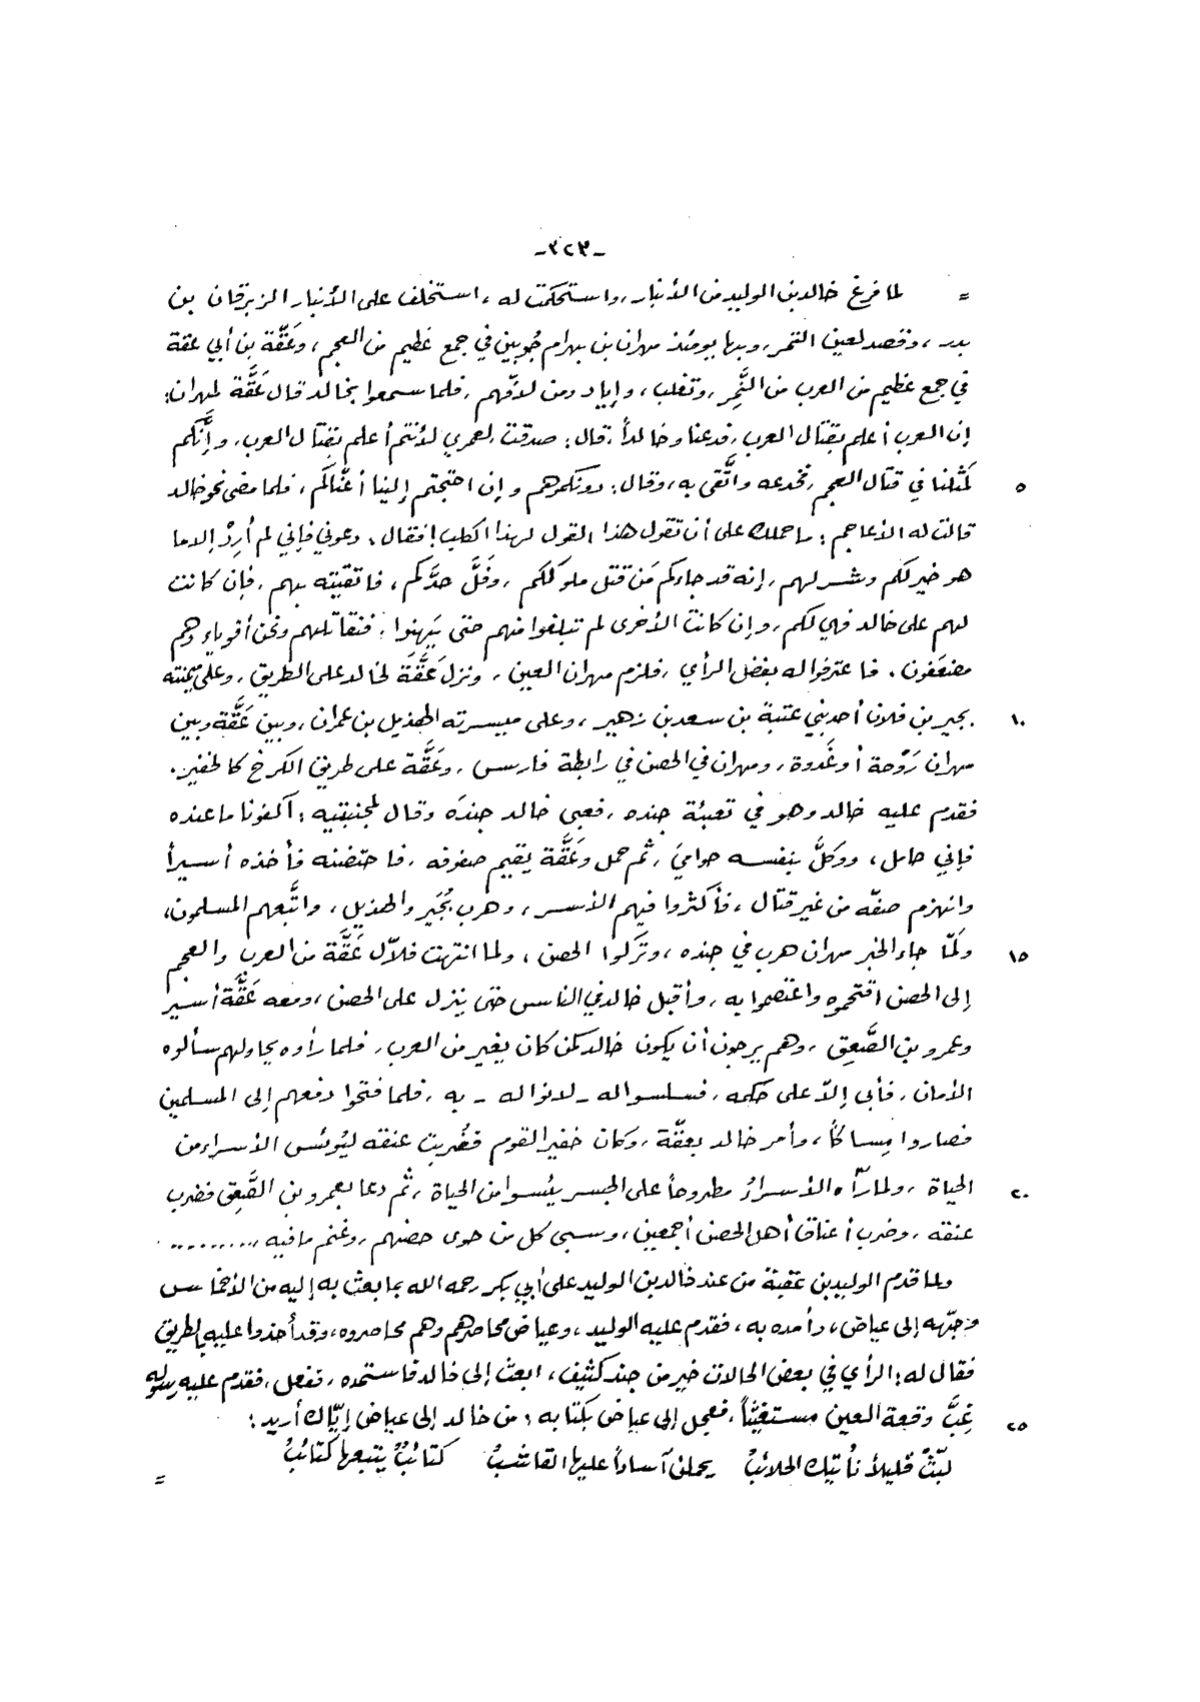 -٣٢٣-
= لما فرغ خالد بن الوليد من الأنبار، واستحكمت له، استخلف على الأنبار الزبرقان بن
بدر، وقصد لعين التمر، وبها يومئذ مهران بن بهرام جُوبين في جمع عظيم من العجم، وعَقَّة بن أبي عقة
في جمع عظيم من العرب من النَّمِر، وتغلب، وإياد ومن لافّهم، فلما سمعوا بخالد قال عَقَّة لمهران:
إن العرب أعلم بقتال العرب، فدعنا وخالداً، قال: صدقت، لعمري لأنتم أعلم بقتال العرب، وإنَّكم
٥ لمثلنا في قتال العجم، فخدعه واتَّقى به، وقال: دونكموهم وإن احتجتم إلينا أعنّاكم، فلما مضى نحو خالد
قالت له الأعاجم: ما حملك على أن تقول هذا القول لهذا الكلب! فقال: دعوني فإني لم أُرِدْ إلا ما
هو خير لكم وشر لهم، إنه قد جاءكم مَن قتل ملوككم، وفَلَّ حدَّكم، فاتقيته بهم، فإن كانت
لهم على خالد فهي لكم، وإن كانت الأخرى لم تبلغوا منهم حتى يَهِنوا، فنقاتلهم ونحن أقوياء وهم
مضعَفون. فاعترفوا له بفضل الرأي، فلزم مهران العين، ونزل عَقَّة لخالد على الطريق، وعلى ميمنته
١٠ بجير بن فلان أحد بني عتبة بن سعد بن زهير، وعلى ميسرته الهذيل بن عمران، وبين عَقَّة وبين
مهران رَوْحة أو غَدوة، ومهران في الحصن في رابطة فارس، وعَقَّة على طريق الكرخ كالخفير.
فقدم عليه خالد وهو في تعبئة جنده، فعبى خالد جندَه وقال لمجنبتيه: اكفونا ما عنده
فإني حامل، ووكَّل بنفسه حواميَ، ثم حمل وعَقَّة يقيم صفوفه، فاحتضنه فأخذه أسيراً
وانهزم صفّه من غير قتال، فأكثروا فيهم الأسر، وهرب بُجَير والهذيل، واتَّبعهم المسلمون،
١٥ ولمّا جاء الخبر مهران هرب في جنده، وتركوا الحصن، ولما انتهت فلاّل عَقَّة من العرب والعجم
إلى الحصن اقتحموه واعتصموا به، وأقبل خالد في الناس حتى ينزل على الحصن، ومعه عَقَّة أسير
وعمرو بن الصَّعِق، وهم يرجون أن يكون خالد كمن كان يغير من العرب، فلما رأوه يحاولهم سألوه
الأمان، فأبى إلاّ على حكمه، فسلسوا له - لانوا له - به، فلما فتحوا دفعهم إلى المسلمين
فصاروا مِساكاً، وأمر خالد بعقّة، وكان خفير القوم فضُربت عنقه ليُوئس الأسراء من
٢٠ الحياة، ولما رآه الأسراءُ مطروحاً على الجسر يئسوا من الحياة، ثم دعا بعمرو بن الصَّعِق فضرب
عنقه، وضرب أعناق أهل الحصن أجمعين، وسبى كل من حوى حصنهم، وغنم ما فيه، .........
ولما قدم الوليد بن عقبة من عند خالد بن الوليد على أبي بكر رحمه الله بما بعث به إليه من الأخماس
وجّهه إلى عياض، وأمده به، فقدم عليه الوليد، وعياض محاصرهم وهم محاصروه، وقد أخذوا عليه بالطريق
فقال له: الرأي في بعض الحالات خير من جند كثيف، ابعث إلى خالد فاستمده، ففعل، فقدم عليه رسوله
٢٥ غِبَّ وقعة العين مستغيثاً، فعجل إلى عياض بكتابه: من خالد إلى عياض إيّاك أريد:
لبّثْ قليلاً تأتيك الحلائبُ يحملن آساداً عليها القاشبُ كتائبٌ يتبعها كتائبُ
=